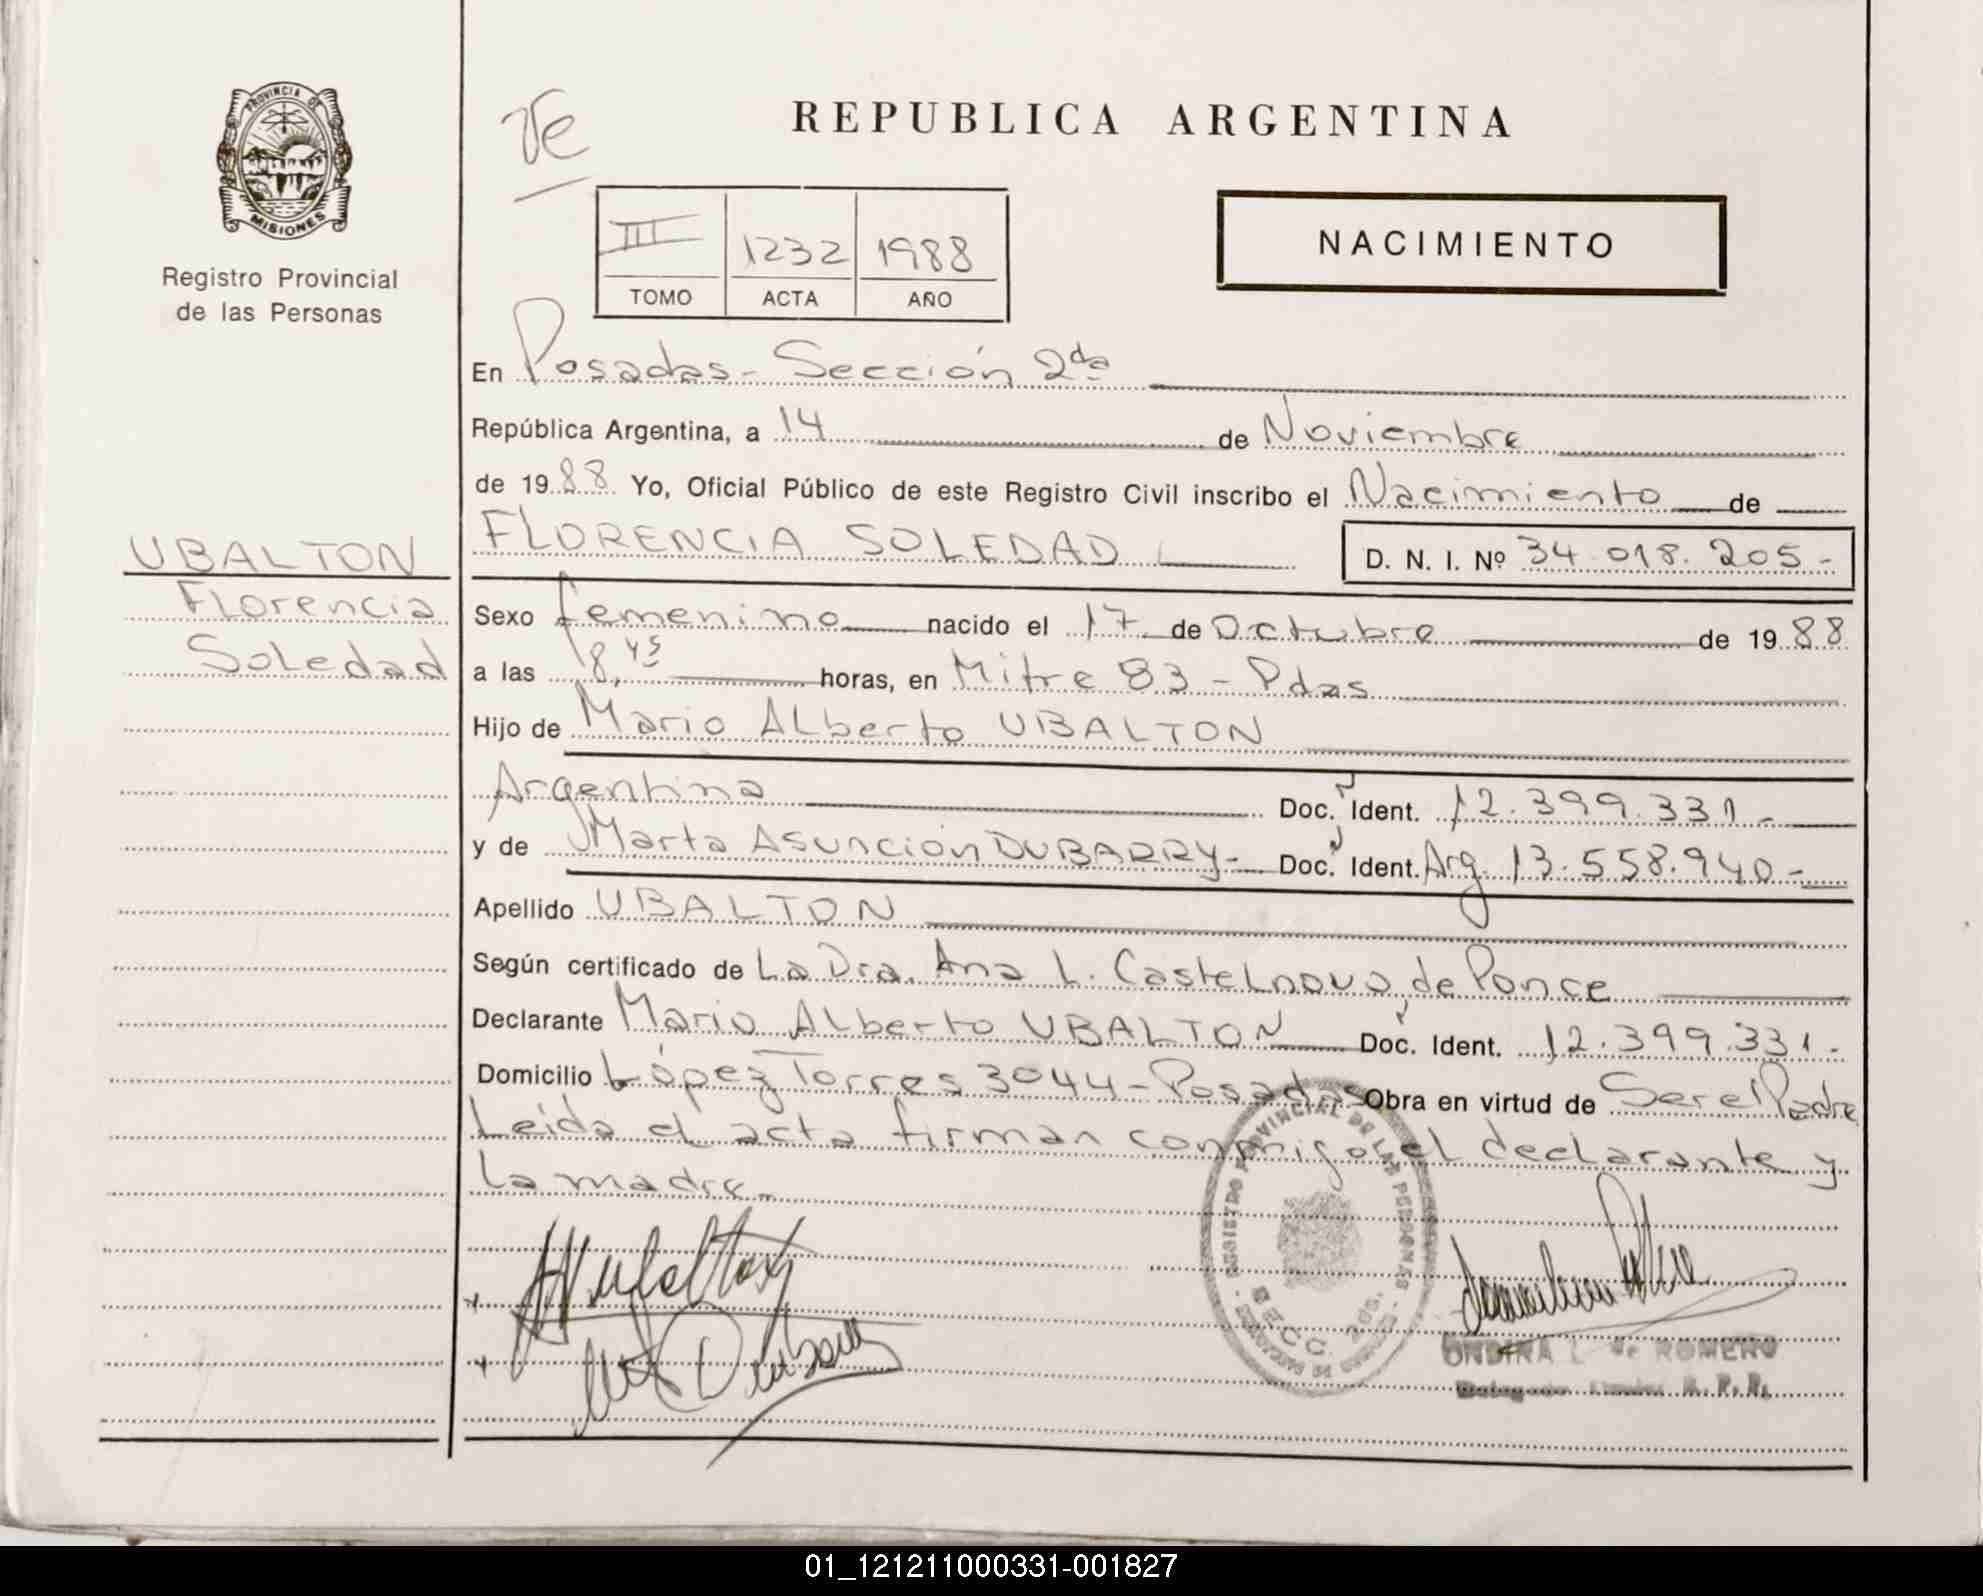 PROVINCIA DE
MISIONES
Registro Provincial
de las Personas
UBALTON
Florencia
Soledad
REPUBLICA ARGENTINA
III 1232 1988
TOMO ACTA AÑO
NACIMIENTO
En Posadas - Sección 2da
República Argentina, a 14 de Noviembre
de 1988 Yo, Oficial Público de este Registro Civil inscribo el Nacimiento de
FLORENCIA SOLEDAD
D. N. I. Nº 34.018.205-
Sexo femenino nacido el 17 de Octubre de 1988
a las 18,45 horas, en Mitre 83 - Pdas
Hijo de Mario Alberto UBALTON
Argentina Doc. Ident. 12.399.331-
y de Marta Asunción DUBARRY- Doc. Ident. Arg. 13.558.940-
Apellido UBALTON
Según certificado de La Dra. Ana L. Castelnovo de Ponce
Declarante Mario Alberto UBALTON Doc. Ident. 12.399.331.-
Domicilio López Torres 3044 - Posadas Obra en virtud de Ser el Padre
Leida el acta firman conmigo el declarante y
la madre.-
REGISTRO PROVINCIAL DE LAS PERSONAS
SECC. 2da.
ONDINA L. de ROMERO
01_121211000331-001827